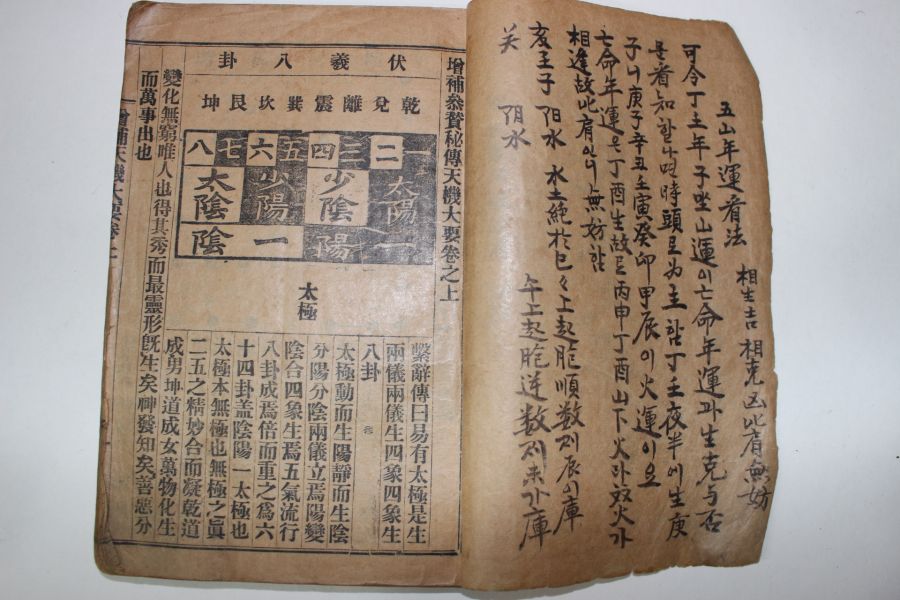 五山年運看法　相生吉 相克凶 比肩無妨
可令丁土年子坐山運이亡命年運과生克与否
을看知할나면時頭로为主함丁壬夜半에生庚
子니庚子辛丑壬寅癸卯甲辰이火運이요
亡命年運은丁酉生故로丙申丁酉山下火라双火가
相逢故比肩이니無好함
亥壬子 阳水 水土絶於巳
上起胞順数則辰이庫
关 阴水
午上起胞逆数則未가庫
增補參贊秘傳天機大要卷之上
伏羲八卦
乾兌離震巽坎艮坤
一二三四五六七八
太陽 少陰 少陽 太陰
陽 一 陰
太極
繫辭傳曰易有太極是生
兩儀兩儀生四象四象生
八卦
太極動而生陽靜而生陰
分陽分陰兩儀立焉陽變
陰合四象生焉五氣流行
八卦成焉倍而重之爲六
十四卦盖陰陽一太極也
太極本無極也無極之眞
二五之精妙合而凝乾道
成男坤道成女萬物化生
變化無窮唯人也得其秀而最靈形旣生矣神發知矣善惡分
而萬事出也
增補天機大要卷上